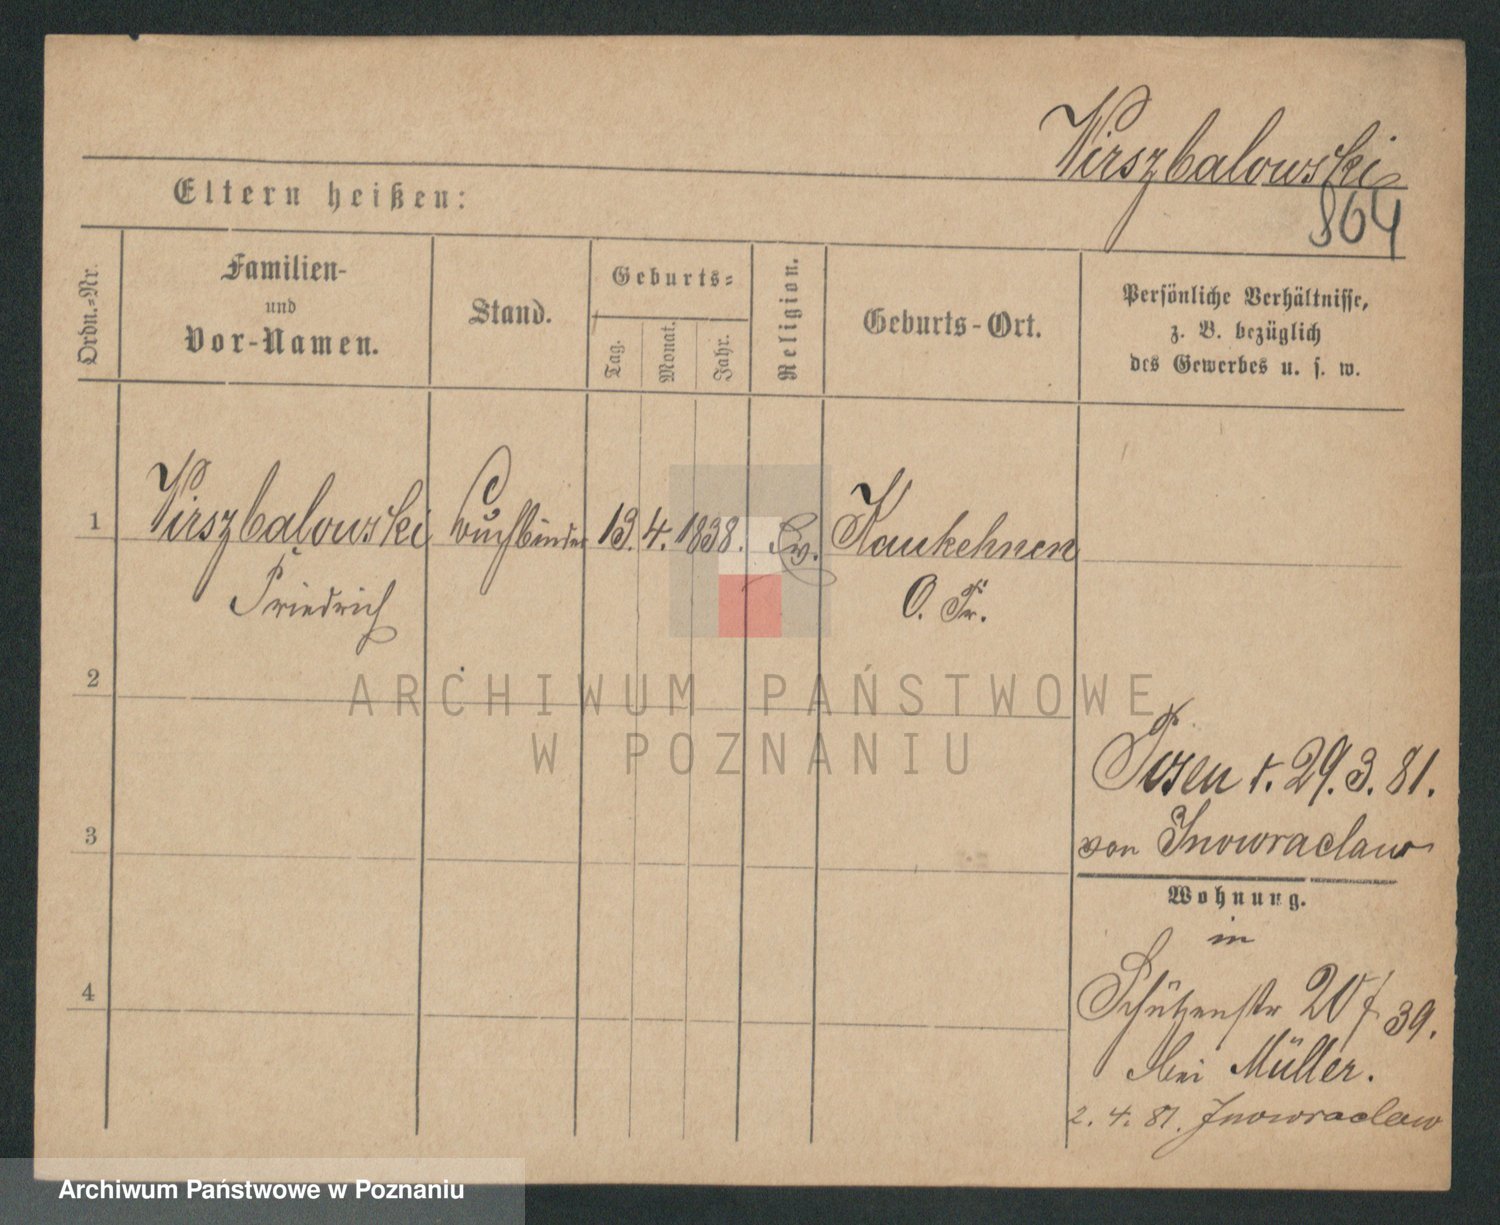 Wirszbalowski
864
Eltern heißen:
Ordn.-Nr.
Familien-
und
Vor-Namen.
Stand.
Geburts-
Tag.
Monat.
Jahr.
Religion.
Geburts-Ort.
Persönliche Verhältnisse,
z. B. bezüglich
des Gewerbes u. s. w.
1 Wirszbalowski Buchbinder 13. 4. 1838. Ev. Kaukehnen
Friedrich O. Pr.
2
ARCHIWUM PAŃSTWOWE
W POZNANIU
Posen d. 29. 3. 81.
3
von Inowraclaw
Wohnung.
in
4
Schützenstr 20 39.
bei Müller.
2. 4. 81. Inowraclaw
Archiwum Państwowe w Poznaniu